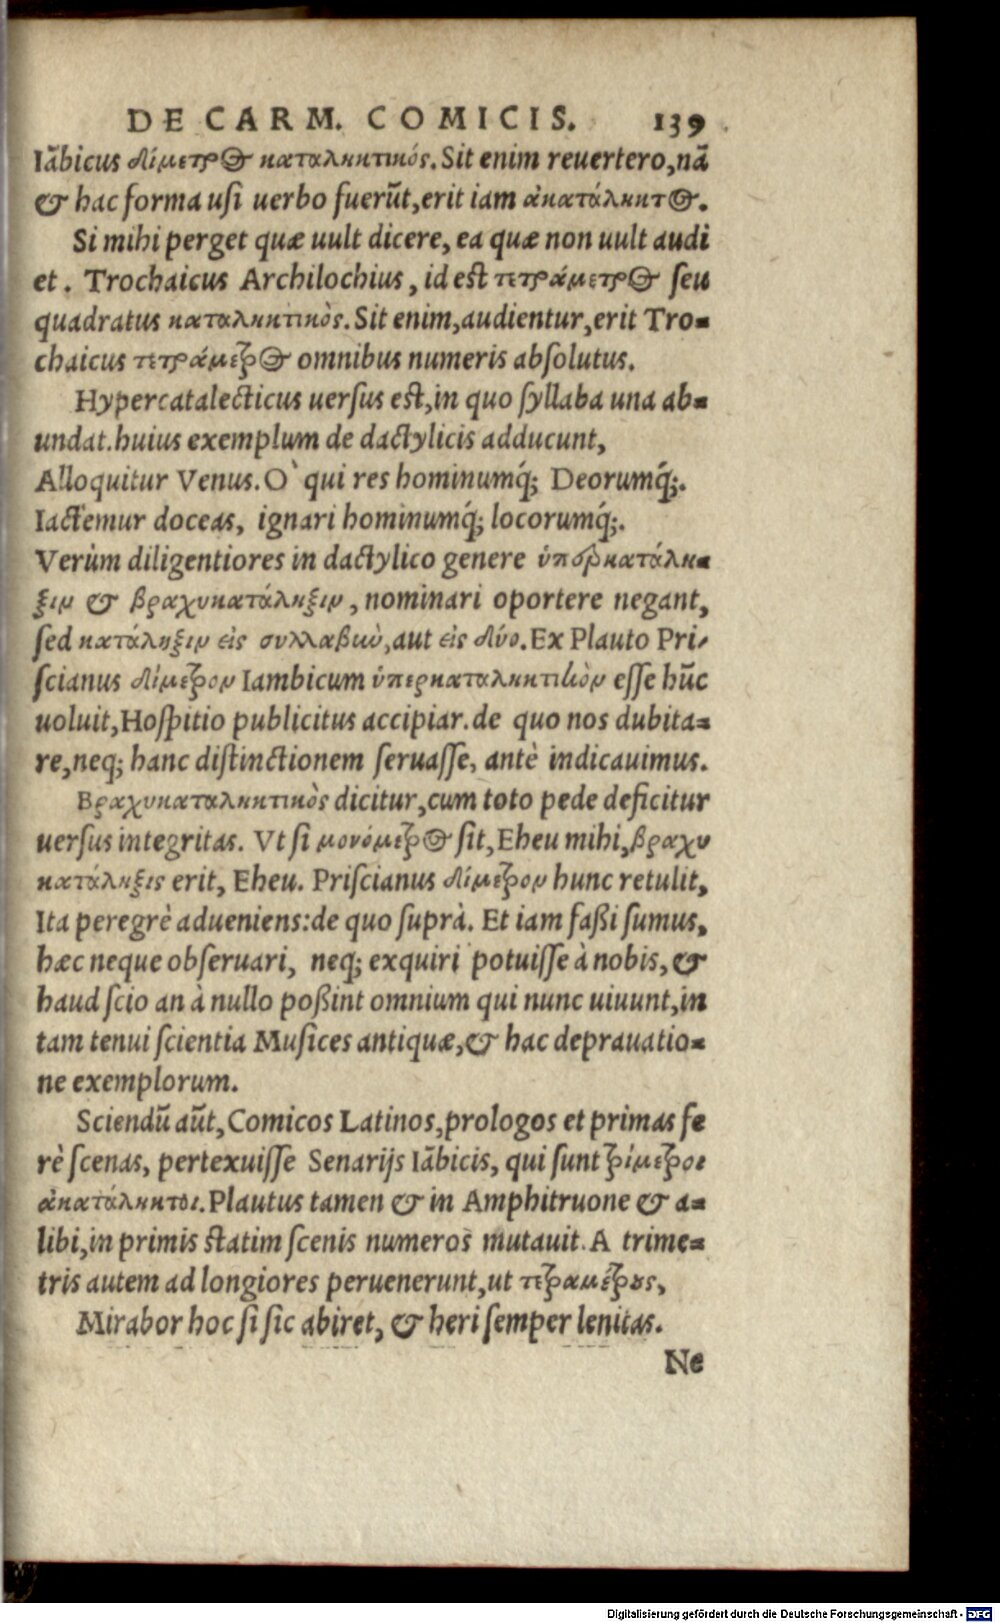 DE CARM. COMICIS. 139
Iābicus δίμετρος καταληκτικός. Sit enim reuertero, nā
& hac forma usi uerbo fuerūt, erit iam ἀκατάληκτος.
Si mihi perget quæ uult dicere, ea quæ non uult audi
et. Trochaicus Archilochius, id est τετράμετρος seu
quadratus καταληκτικὸς. Sit enim, audientur, erit Tro-
chaicus τετράμετρος omnibus numeris absolutus.
Hypercatalecticus uersus est, in quo syllaba una ab-
undat. huius exemplum de dactylicis adducunt,
Alloquitur Venus. O` qui res hominumq́; Deorumq́;.
Iactemur doceas, ignari hominumq́; locorumq́;.
Verùm diligentiores in dactylico genere ὑπερκατάλη-
ξιν & βραχυκατάληξιν, nominari oportere negant,
sed κατάληξιν εἰς συλλαβὼ, aut εἰς δύο. Ex Plauto Pri-
scianus δίμετρον Iambicum ὑπερκαταληκτικὸν esse hūc
uoluit, Hospitio publicitus accipiar. de quo nos dubita-
re, neq; hanc distinctionem seruasse, antè indicauimus.
Βραχυκαταληκτικὸς dicitur, cum toto pede deficitur
uersus integritas. Vt si μονόμετρος sit, Eheu mihi, βραχυ
κατάληξις erit, Eheu. Priscianus δίμετρον hunc retulit,
Ita peregrè adueniens: de quo suprà. Et iam faßi sumus,
hæc neque obseruari, neq; exquiri potuisse à nobis, &
haud scio an à nullo poßint omnium qui nunc uiuunt, in
tam tenui scientia Musices antiquæ, & hac deprauatio-
ne exemplorum.
Sciendū aūt, Comicos Latinos, prologos et primas fe
rè scenas, pertexuisse Senarijs Iābicis, qui sunt τρίμετροι
ἀκατάληκτοι. Plautus tamen & in Amphitruone & a-
libi, in primis statim scenis numeros mutauit. A trime-
tris autem ad longiores peruenerunt, ut τετραμέτρους,
Mirabor hoc si sic abiret, & heri semper lenitas.
Ne
Digitalisierung gefördert durch die Deutsche Forschungsgemeinschaft - DFG